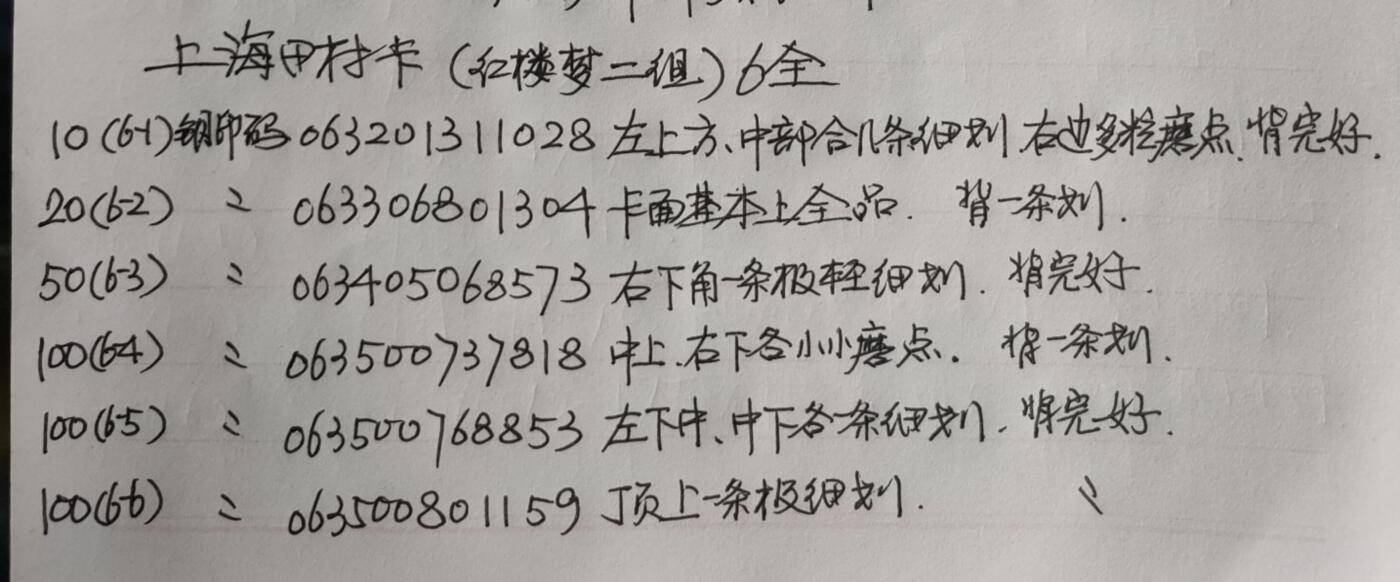 上海田村卡(红楼梦二组)6全
10(6-1)钢印码063201311028左上方、中部合几条细划.右边多粒磨点.背完好.
20(6-2) 〃 063306801304卡面基本上全品. 背一条划.
50(6-3) 〃 063405068573右下角一条极轻细划. 背完好.
100(6-4) 〃 063500737818中上.右下各小小磨点. 背一条划.
100(6-5) 〃 063500768853左下中、中下各一条细划. 背完好.
100(6-6) 〃 063500801159顶上一条极细划. 〃